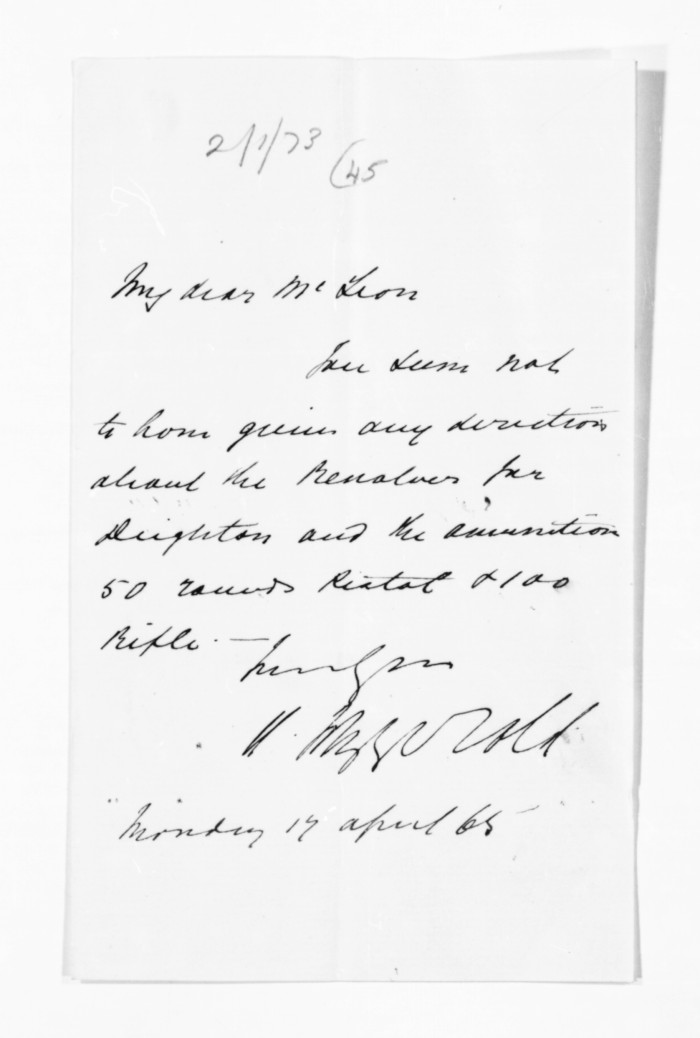 2/1/73
(45
My dear McLean
You seem not
to have given any directions
about the Revolver for
Deighton and the ammunition
50 rounds Pistol & 100
Rifle. —
Yours
Monday 17 April 65